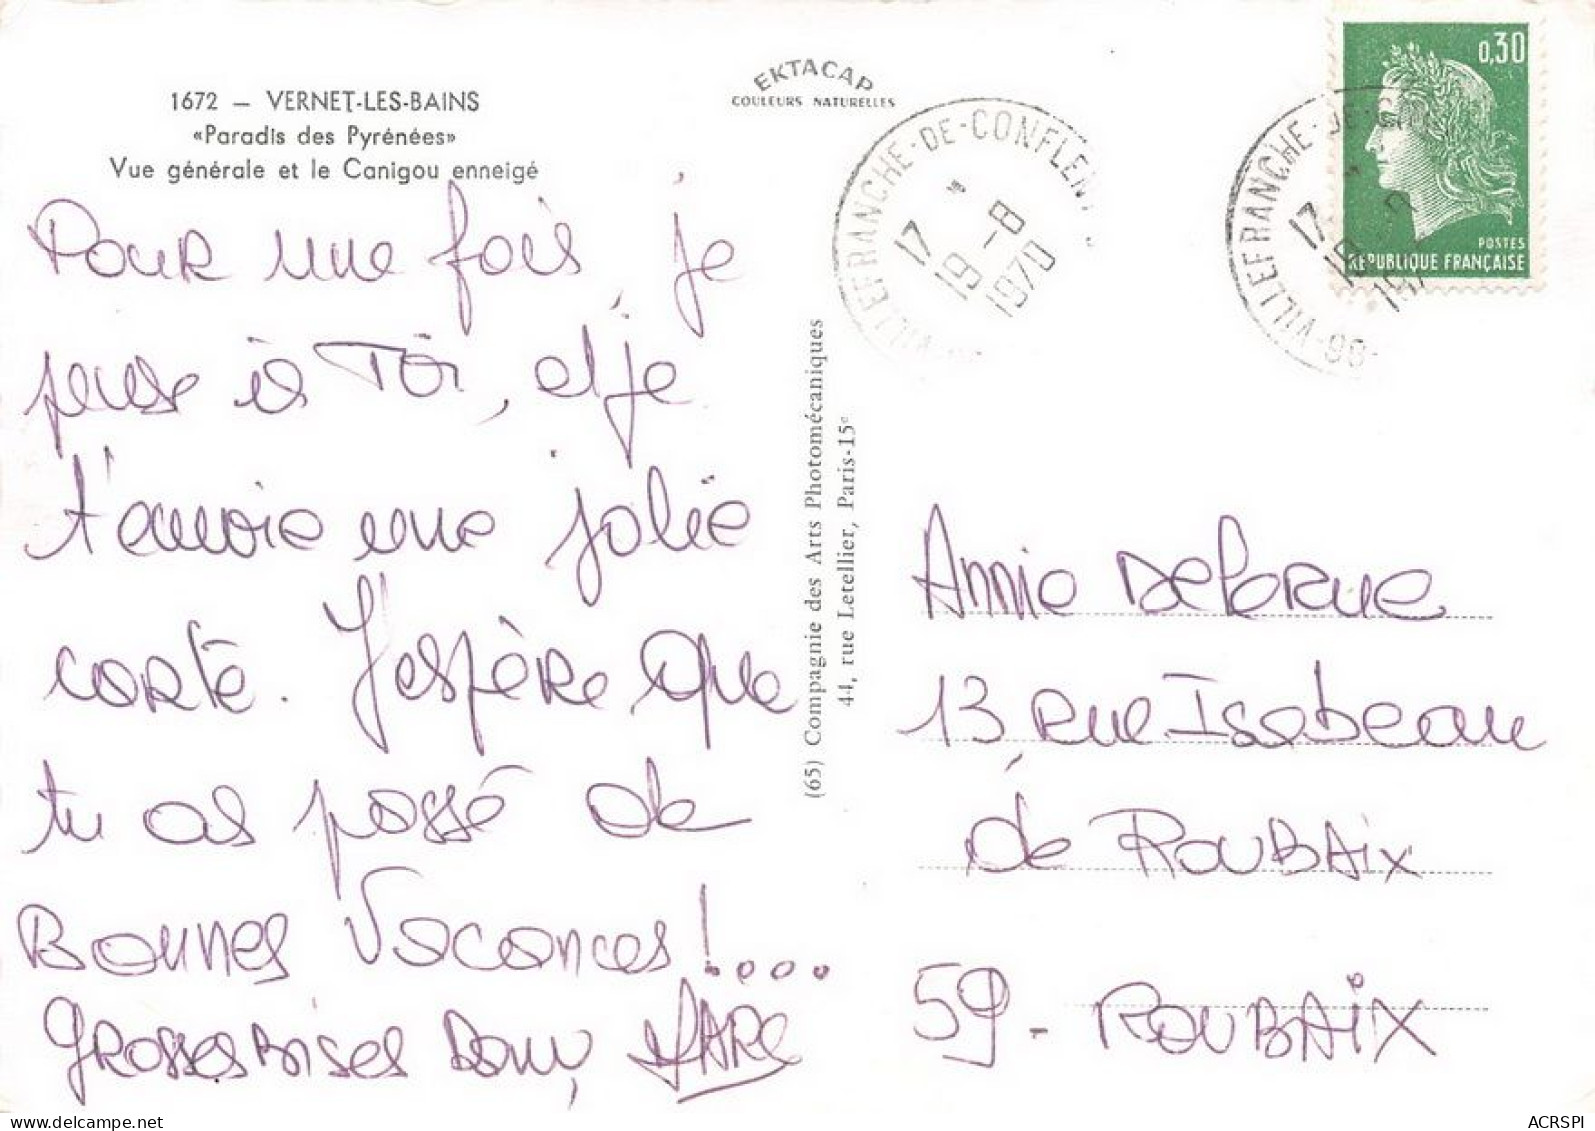 1672 — VERNET-LES-BAINS
«Paradis des Pyrénées»
Vue générale et le Canigou enneigé
EKTACAP
COULEURS NATURELLES
VILLEFRANCHE-DE-CONFLENT
17
19-8
1970
0,30
POSTES
REPUBLIQUE FRANÇAISE
66-VILLEFRANCHE-DE-CO
17
19
197
Pour une fois je
pense à Toi, et je
t'envoie une jolie
carte. J'espère que
tu as passé de
Bonnes Vacances!....
Grosses Bises
MARC
(65) Compagnie des Arts Photomécaniques
44, rue Letellier, Paris-15e
Annie Delorue
13 Rue Isabeau
de ROUBAIX
59 - ROUBAIX
delcampe.net
ACRSPI